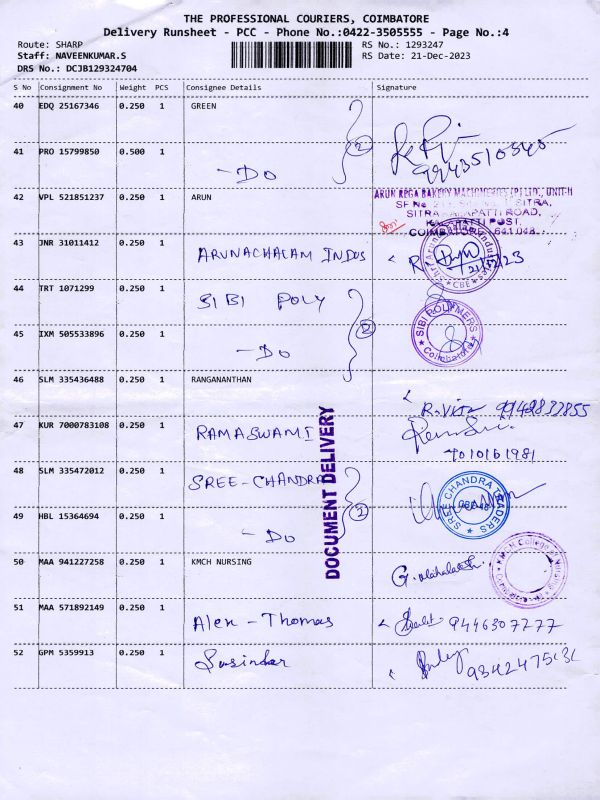 THE PROFESSIONAL COURIERS, COIMBATORE
Delivery Runsheet - PCC - Phone No.:0422-3505555 - Page No.:4
Route: SHARP
RS No.: 1293247
Staff: NAVEENKUMAR.S
RS Date: 21-Dec-2023
DRS No.: DCJB129324704
S No Consignment No Weight PCS Consignee Details Signature
40 EDQ 25167346 0.250 1 GREEN
2
41 PRO 15799850 0.500 1 - DO
42 VPL 521851237 0.250 1 ARUN
ARUN RPGA BAKERY MACHINERIES (P) LTD., UNIT-II
SITRA
ROAD,
POST,
COIMBATORE - 641 048.
43 JNR 31011412 0.250 1 ARUNACHALAM INDUS
CBE
44 TRT 1071299 0.250 1 SIBI POLY
2
SIBI POLYMERS
Coimbatore
45 IXM 505533896 0.250 1 - DO
46 SLM 335436488 0.250 1 RANGANANTHAN
47 KUR 7000783108 0.250 1 RAMASWAMI
DOCUMENT DELIVERY
48 SLM 335472012 0.250 1 SREE - CHANDRA
2
SREE CHANDRA TRADERS
49 HBL 15364694 0.250 1 - DO
50 MAA 941227258 0.250 1 KMCH NURSING
KMCH College of Nursing
51 MAA 571892149 0.250 1 Alen - Thomas
9446307277
52 GPM 5359913 0.250 1 Susindar